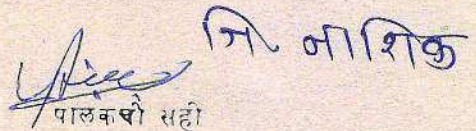 जि. नाशिक
पालकची सही